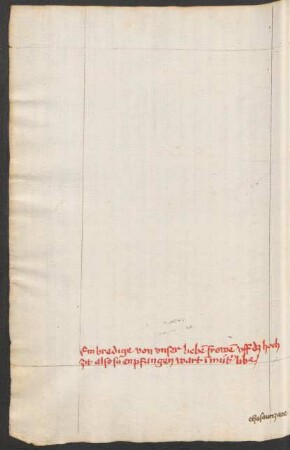 Ein bredige von vnser liebē frowē vff dz hoch
zit also sú enpfangen wart in můt͛ libe